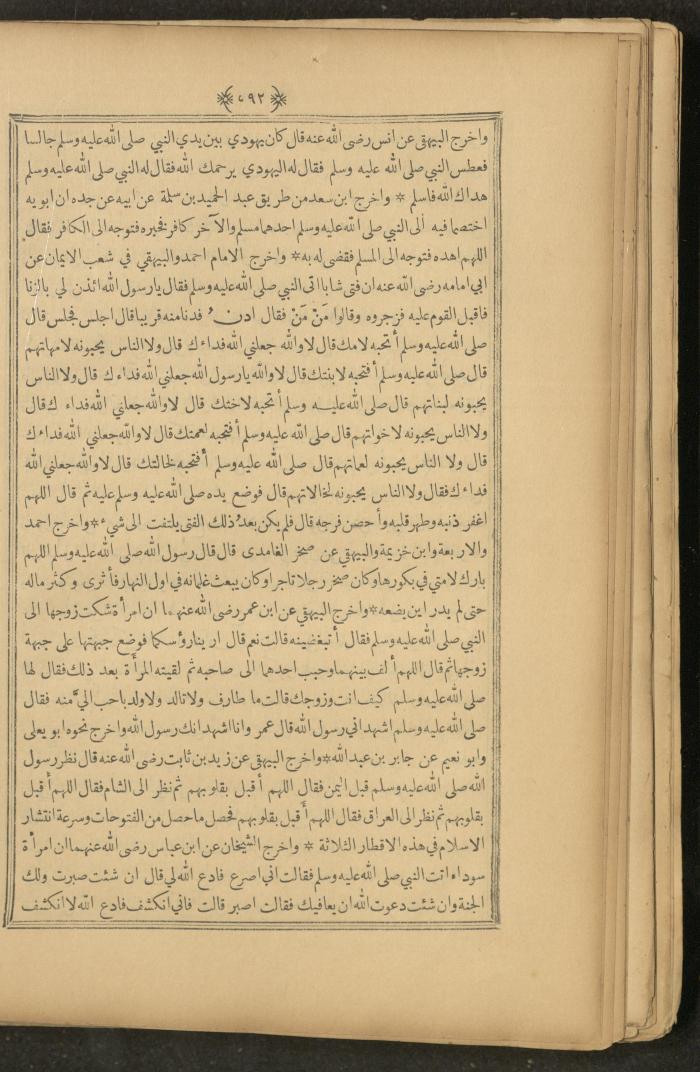 ٠٩٢
واخرج البيهقي عن انس رضى الله عنه قال كان يهودي بين يدي النبي صلى الله عليه وسلم جالسا
فعطس النبي صلى الله عليه وسلم فقال له اليهودي يرحمك الله فقال له النبي صلى الله عليه وسلم
هداك الله فاسلم * واخرج ابن سعد من طريق عبد الحميد بن سلمة عن ابيه عن جده ان ابويه
اختصما فيه الى النبي صلى الله عليه وسلم احدهما مسلم والآخر كافر فخيره فتوجه الى الكافر فقال
اللهم اهده فتوجه الى المسلم فقضى له به * واخرج الامام احمد والبيهقي في شعب الايمان عن
ابي امامه رضى الله عنه ان فتى شابا اتى النبي صلى الله عليه وسلم فقال يا رسول الله ائذن لي بالزنا
فاقبل القوم عليه فزجروه وقالوا مَنْ مَنْ فقال ادن فدنا منه قريبا قال اجلس فجلس قال
صلى الله عليه وسلم أتحبه لامك قال لا والله جعلني الله فداءك قال ولا الناس يحبونه لامهاتهم
قال صلى الله عليه وسلم أفتحبه لابنتك قال لا والله يا رسول الله جعلني الله فداءك قال ولا الناس
يحبونه لبناتهم قال صلى الله عليه وسلم أتحبه لاختك قال لا والله جعلني الله فداءك قال
ولا الناس يحبونه لاخواتهم قال صلى الله عليه وسلم أفتحبه لعمتك قال لا والله جعلني الله فداءك
قال ولا الناس يحبونه لعماتهم قال صلى الله عليه وسلم أفتحبه لخالتك قال لا والله جعلني الله
فداءك فقال ولا الناس يحبونه لخالاتهم قال فوضع يده صلى الله عليه وسلم عليه ثم قال اللهم
اغفر ذنبه وطهر قلبه وأحصن فرجه قال فلم يكن بعد ذلك الفتى يلتفت الى شيء * واخرج احمد
والاربعة وابن خزيمة والبيهقي عن صخر الغامدى قال قال رسول الله صلى الله عليه وسلم اللهم
بارك لامتي في بكورها وكان صخر رجلا تاجرا وكان يبعث غلمانه في اول النهار فأثرى وكثر ماله
حتى لم يدر اين يضعه * واخرج البيهقي عن ابن عمر رضى الله عنهما ان امرأة شكت زوجها الى
النبي صلى الله عليه وسلم فقال أتبغضينه قالت نعم قال ادنيا رؤسكما فوضع جبهتها على جبهة
زوجها ثم قال اللهم ألف بينهما وحبب احدهما الى صاحبه ثم لقيته المرأة بعد ذلك فقال لها
صلى الله عليه وسلم كيف انت وزوجك قالت ما طارف ولا تالد ولا ولد باحب اليَّ منه فقال
صلى الله عليه وسلم اشهد اني رسول الله قال عمر وانا اشهد انك رسول الله واخرج نحوه ابو يعلى
وابو نعيم عن جابر بن عبد الله * واخرج البيهقي عن زيد بن ثابت رضى الله عنه قال نظر رسول
الله صلى الله عليه وسلم قبل اليمن فقال اللهم أقبل بقلوبهم ثم نظر الى الشام فقال اللهم أقبل
بقلوبهم ثم نظر الى العراق فقال اللهم أقبل بقلوبهم فحصل ما حصل من الفتوحات وسرعة انتشار
الاسلام في هذه الاقطار الثلاثة * واخرج الشيخان عن ابن عباس رضى الله عنهما ان امرأة
سوداء اتت النبي صلى الله عليه وسلم فقالت اني اصرع فادع الله لي قال ان شئت صبرت ولك
الجنة وان شئت دعوت الله ان يعافيك فقالت اصبر قالت فاني انكشف فادع الله لا انكشف